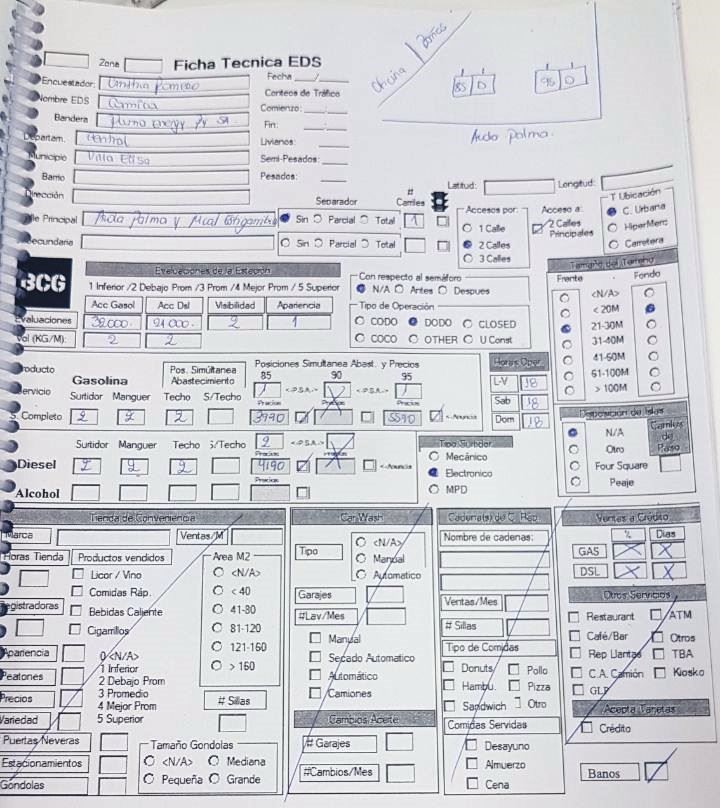 Oficina
85 D
95 D
Avda Palma
Zona
Ficha Tecnica EDS
Encuestador:
Fecha
Nombre EDS
Conteos de Tráfico
Bandera
Comienzo:
Fin:
Departam. Central
Livianos:
Municipio Villa Elisa
Semi-Pesados:
Barrio
Pesados:
Dirección
Latitud: Longitud:
Separador # Carriles
Calle Principal Avda Palma y Mcal Estigarribia Sin Parcial Total 1
Secundaria Sin Parcial Total
Accesos por:
1 Calle
2 Calles
3 Calles
Acceso a:
2 Calles Principales
T Ubicación
C. Urbana
HiperMerc
Carretera
BCG
Evaluaciones de la Estación
1 Inferior /2 Debajo Prom /3 Prom /4 Mejor Prom / 5 Superior
Acc Gasol Acc Dsl Visibilidad Apariencia
Evaluaciones 2 1
Vol (KG/M): 2 2
Con respecto al semáforo
N/A Antes Despues
Tipo de Operación
CODO DODO CLOSED
COCO OTHER U Const
Tamaño del Terreno
Frente Fondo
<N/A>
< 20M
21-30M
31-40M
41-60M
61-100M
> 100M
Producto
Gasolina
Servicio
Pos. Simúltanea Abastecimiento
Posiciones Simultanea Abast. y Precios
85 90 95
Surtidor Manguer Techo S/Techo
1 <-P.S.A.-> <-P.S.A.-> 1
Precios Precios Precios
S. Completo 2 2 2 3990 5590 <-Anuncia
Horas Oper.
L-V 18
Sab 18
Dom 18
Disposición de Islas
N/A
Otro
Four Square
Peaje
Carriles de Paso
Surtidor Manguer Techo S/Techo 2 <-P.S.A.->
Precios Precios
Diesel 2 2 2 4190 <-Anuncia
Precios
Alcohol
Tipo Surtidor
Mecánico
Electronico
MPD
Tienda de Conveniencia
Marca Ventas/M
Horas Tienda Productos vendidos
Licor / Vino
Comidas Ráp.
Registradoras Bebidas Caliente
Cigarrillos
Area M2
<N/A>
< 40
41-80
81-120
121-160
> 160
Apariencia 0 <N/A>
1 Inferior
Peatones 2 Debajo Prom
3 Promedio
Precios 4 Mejor Prom
Variedad 5 Superior
# Sillas
Puertas Neveras
Estacionamientos
Gondolas
Tamaño Gondolas
<N/A> Mediana
Pequeña Grande
Car Wash
Tipo
<N/A>
Manual
Automatico
Garajes
#Lav/Mes
Manual
Secado Automatico
Automático
Camiones
Cambios Aceite
# Garajes
#Cambios/Mes
Cadena(s) de C. Rap.
Nombre de cadenas:
Ventas/Mes
# Sillas
Tipo de Comidas
Donuts Pollo
Hambu. Pizza
Sandwich Otro
Comidas Servidas
Desayuno
Almuerzo
Cena
Ventas a Crédito
% Dias
GAS
DSL
Otros Servicios
Restaurant ATM
Café/Bar Otros
Rep Llantas TBA
C.A. Camión Kiosko
GLP
Acepta Tarjetas
Crédito
Banos